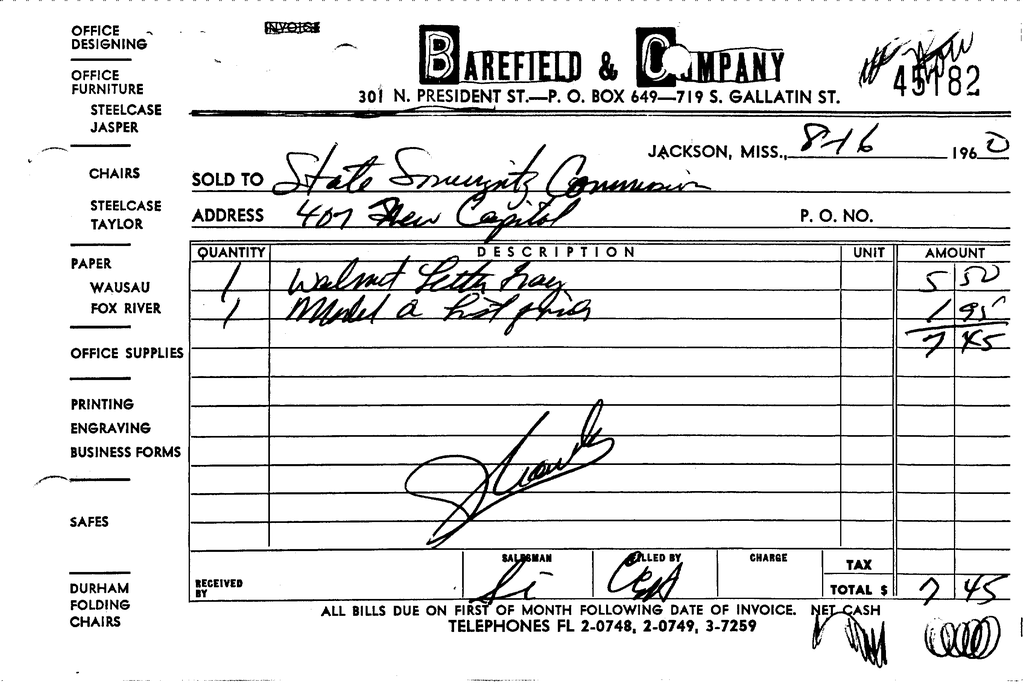 OFFICE
DESIGNING
OFFICE
FURNITURE
STEELCASE
JASPER
CHAIRS
STEELCASE
TAYLOR
PAPER
WAUSAU
FOX RIVER
OFFICE SUPPLIES
PRINTING
ENGRAVING
BUSINESS FORMS
SAFES
DURHAM
FOLDING
CHAIRS
INVOICE
BAREFIELD & COMPANY
45182
301 N. PRESIDENT ST.—P. O. BOX 649—719 S. GALLATIN ST.
JACKSON, MISS., 8-16 1960
SOLD TO State Sovereignty Commission
ADDRESS 407 New Capitol P. O. NO.
QUANTITY DESCRIPTION UNIT AMOUNT
1 Walnut Letter Tray 5 50
1 Model a 1 95
7 45
SALESMAN FILLED BY CHARGE TAX
RECEIVED
BY
TOTAL $ 7 45
ALL BILLS DUE ON FIRST OF MONTH FOLLOWING DATE OF INVOICE. NET CASH
TELEPHONES FL 2-0748, 2-0749, 3-7259